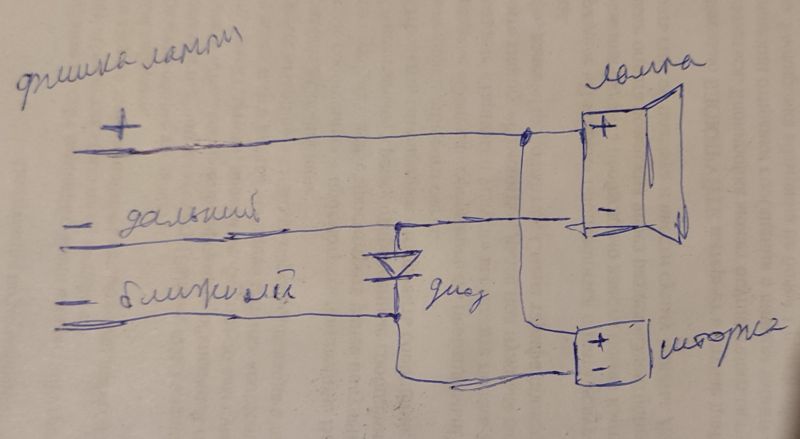 фишка лампы
лампа
+
+
- дальний
-
- ближний
диод
шторка
+
-